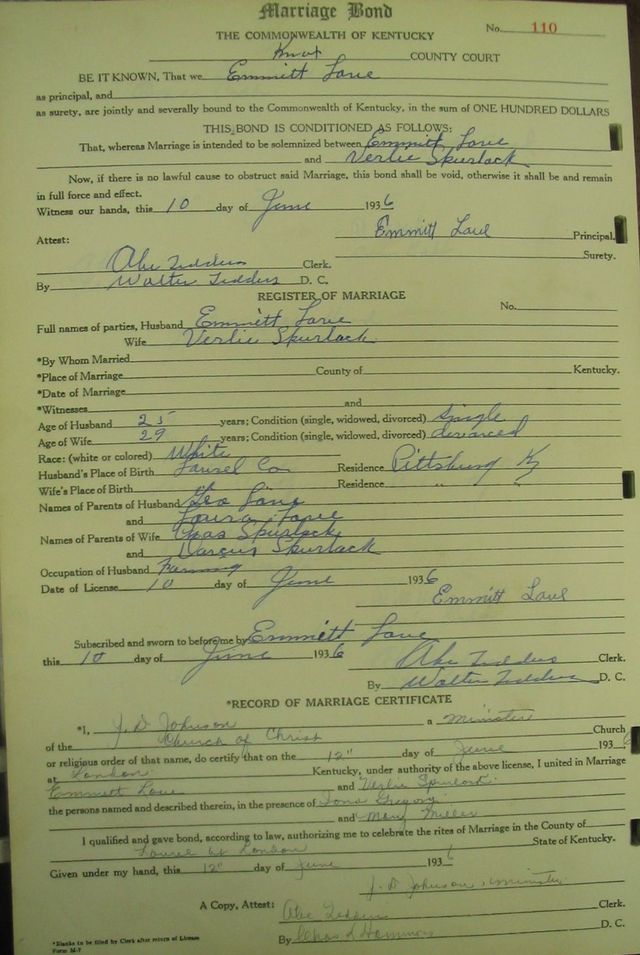 Marriage Bond
No. 110
THE COMMONWEALTH OF KENTUCKY
Knox COUNTY COURT
BE IT KNOWN, That we Emmitt
as principal, and
as surety, are jointly and severally bound to the Commonwealth of Kentucky, in the sum of ONE HUNDRED DOLLARS
THIS BOND IS CONDITIONED AS FOLLOWS:
That, whereas Marriage is intended to be solemnized between Emmitt
and Verlie Skurlack
Now, if there is no lawful cause to obstruct said Marriage, this bond shall be void, otherwise it shall be and remain
in full force and effect.
Witness our hands, this 10 day of June 1936
Emmitt Principal.
Attest: Surety.
Abe Tedders Clerk.
By Walter Tedders D. C.
REGISTER OF MARRIAGE
No.
Full names of parties, Husband Emmett
Wife Verlie Skurlack
*By Whom Married
*Place of Marriage County of Kentucky.
*Date of Marriage
*Witnesses and
Age of Husband 25 years; Condition (single, widowed, divorced) Single
Age of Wife 29 years; Condition (single, widowed, divorced)
Race: (white or colored) White
Husband's Place of Birth Laurel Co Residence Pittsburg Ky
Wife's Place of Birth " Residence " "
Names of Parents of Husband Geo
and Laura
Names of Parents of Wife Chas Skurlack
and Skurlack
Occupation of Husband Farming
Date of License 10 day of June 1936
Emmitt
Subscribed and sworn to before me by Emmett
this 10 day of June 1936 Abe Tedders Clerk.
By Walter Tedders D. C.
*RECORD OF MARRIAGE CERTIFICATE
*I, J. D Johnson a Minister
of the Church of Christ Church
or religious order of that name, do certify that on the 12" day of June 1936
at London Kentucky, under authority of the above license, I united in Marriage
Emmett and Verlie
the persons named and described therein, in the presence of Gregory
and Mary Miller
I qualified and gave bond, according to law, authorizing me to celebrate the rites of Marriage in the County of
at London State of Kentucky.
Given under my hand, this 12" day of June 1936
J. D Johnson, minister
A Copy, Attest: Abe Clerk.
By Chas D. C.
*Blanks to be filled by Clerk after return of License
Form M-7